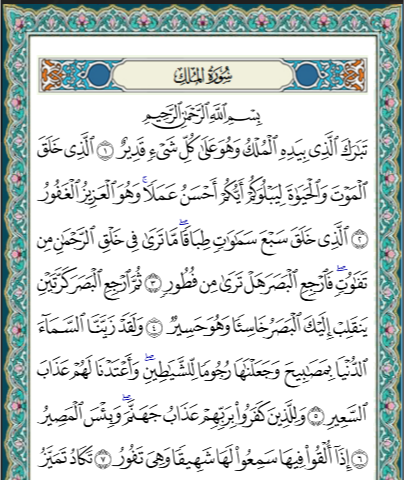 سُورَةُ الْمُلْكِ
بِسْمِ اللَّهِ الرَّحْمَٰنِ الرَّحِيمِ
تَبَارَكَ ٱلَّذِى بِيَدِهِ ٱلْمُلْكُ وَهُوَ عَلَىٰ كُلِّ شَىْءٍ قَدِيرٌ ١ ٱلَّذِى خَلَقَ
ٱلْمَوْتَ وَٱلْحَيَوٰةَ لِيَبْلُوَكُمْ أَيُّكُمْ أَحْسَنُ عَمَلًا ۚ وَهُوَ ٱلْعَزِيزُ ٱلْغَفُورُ
٢ ٱلَّذِى خَلَقَ سَبْعَ سَمَٰوَٰتٍ طِبَاقًا ۖ مَّا تَرَىٰ فِى خَلْقِ ٱلرَّحْمَٰنِ مِن
تَفَٰوُتٍ ۖ فَٱرْجِعِ ٱلْبَصَرَ هَلْ تَرَىٰ مِن فُطُورٍ ٣ ثُمَّ ٱرْجِعِ ٱلْبَصَرَ كَرَّتَيْنِ
يَنقَلِبْ إِلَيْكَ ٱلْبَصَرُ خَاسِئًا وَهُوَ حَسِيرٌ ٤ وَلَقَدْ زَيَّنَّا ٱلسَّمَآءَ
ٱلدُّنْيَا بِمَصَٰبِيحَ وَجَعَلْنَٰهَا رُجُومًا لِّلشَّيَٰطِينِ ۖ وَأَعْتَدْنَا لَهُمْ عَذَابَ
ٱلسَّعِيرِ ٥ وَلِلَّذِينَ كَفَرُوا۟ بِرَبِّهِمْ عَذَابُ جَهَنَّمَ ۖ وَبِئْسَ ٱلْمَصِيرُ
٦ إِذَآ أُلْقُوا۟ فِيهَا سَمِعُوا۟ لَهَا شَهِيقًا وَهِىَ تَفُورُ ٧ تَكَادُ تَمَيَّزُ